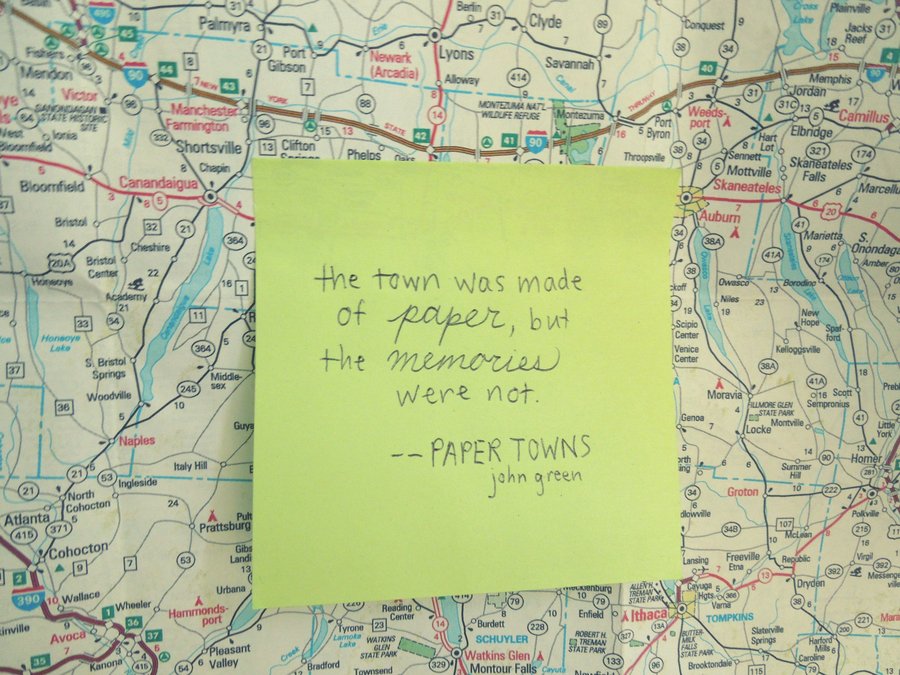 the town was made
of paper, but
the memories
were not.
-- PAPER TOWNS
john green
Palmyra
Berlin
Clyde
Plainville
Conquest
Cross
Lake
Jacks
Reef
Fishers
Mendon
Port
Gibson
Newark
(Arcadia)
Lyons
Savannah
Alloway
Victor
Manchester
Farmington
Shortsville
Clifton
Phelps
Chapin
NEW
YORK
STATE
THRUWAY
MONTEZUMA NAT'L
WILDLIFE REFUGE
Montezuma
Port
Byron
Throopsville
Weeds-
port
Memphis
Jordan
Elbridge
Camillus
Hart
Lot
Sennett
Mottville
Skaneateles
Falls
Skaneateles
Marcellu
Auburn
Bloomfield
Canandaigua
Bristol
Cheshire
Bristol
Center
Academy
Honeoye
Honeoye
Lake
Canandaigua
Lake
S. Bristol
Springs
Woodville
Middle-
sex
Naples
Italy Hill
Ingleside
North
Cohocton
Atlanta
Cohocton
Prattsburg
Wallace
Wheeler
Avoca
Kanona
Hammonds-
port
Urbana
Pleasant
Valley
Marietta
S.
Onondaga
Amber
Owasco
Niles
Owasco
Lake
Borodino
New
Hope
Spaf-
ford
Kelloggsville
Scipio
Center
Venice
Center
Moravia
FILLMORE GLEN
STATE PARK
Montville
Locke
Scott
Sempronius
Genoa
Summer
Hill
Little
York
Homer
Groton
Polkville
McLean
Lansing
Freeville
Etna
Republic
Dryden
Virgil
Messenger-
ville
Cayuga
Hgts.
Varna
Ithaca
TOMPKINS
BUTTER-
MILK
FALLS
STATE PARK
Slaterville
Springs
Brooktondale
Harford
Mills
Caroline
Enfield
ROBERT H.
TREMAN
STATE PARK
Reading
Center
Burdett
SCHUYLER
Watkins Glen
Montour Falls
WATKINS
GLEN
STATE PARK
Townsend
Tyrone
Lamoka
Lake
Bradford